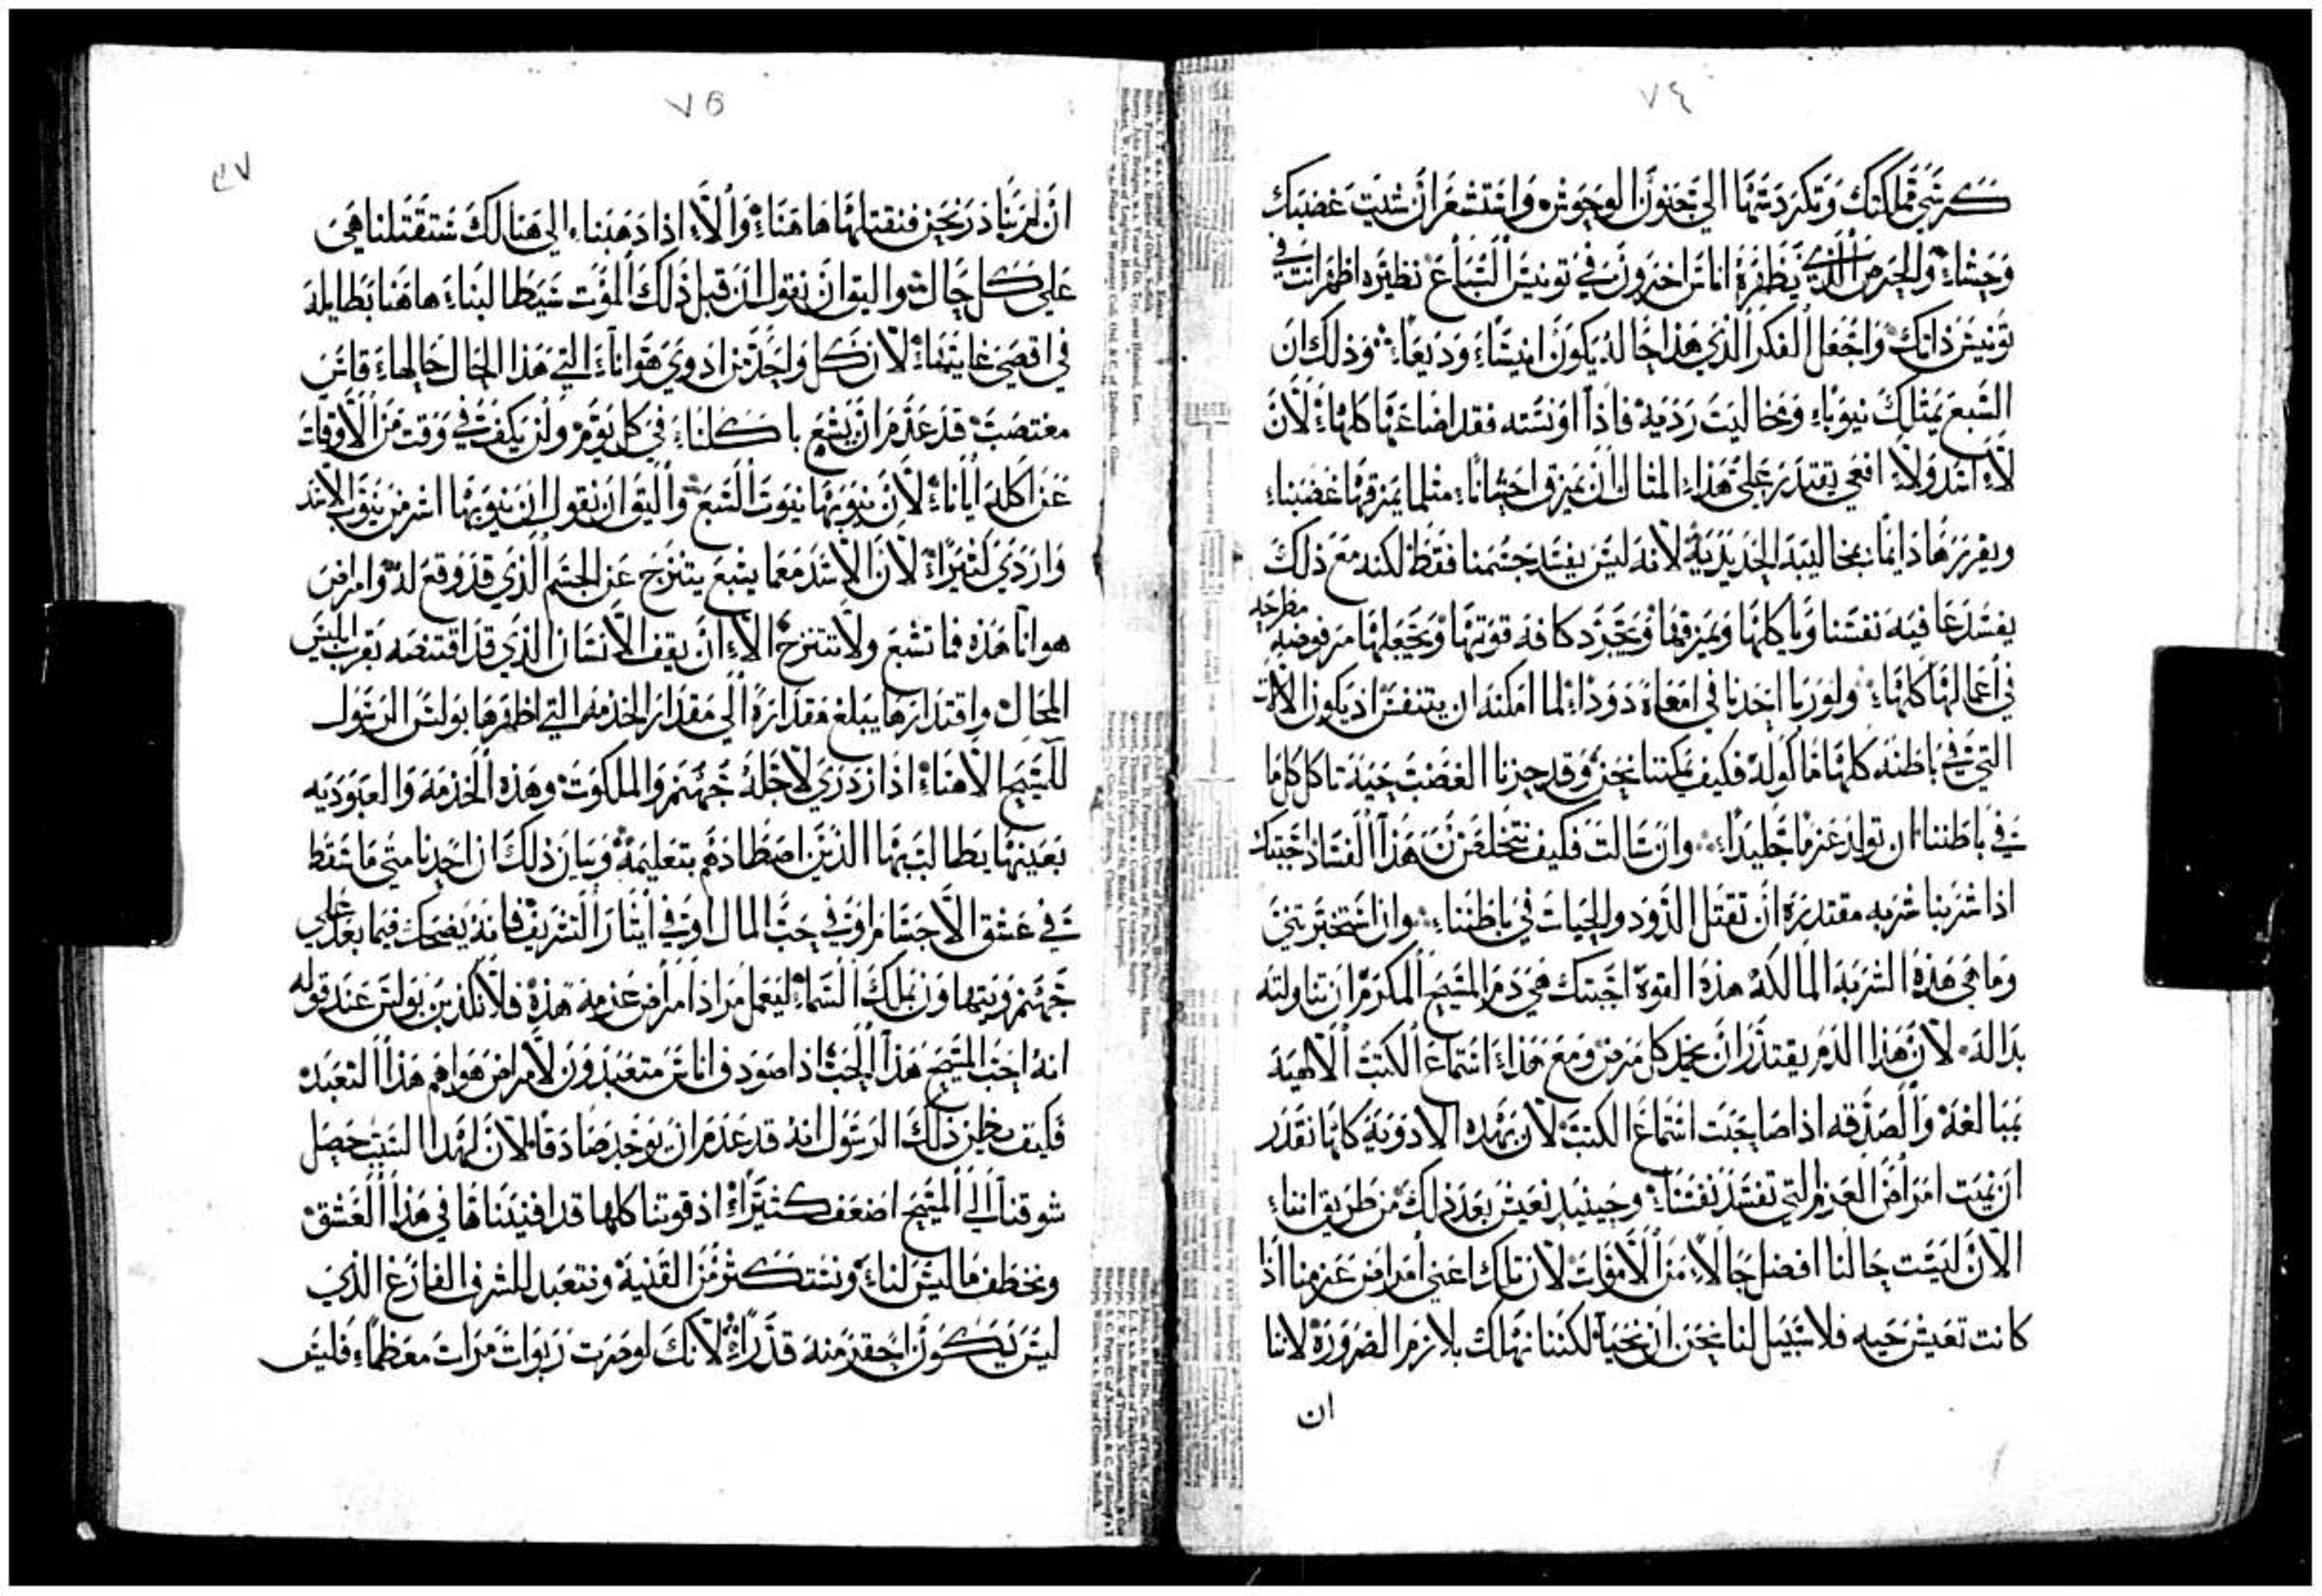 ٧٤
كرسي مملكتك وتكردسها الي جنون الوحوش واستشعر ان شيت غضبك
وحشاء والجرمن الذي يظفره اناس اخرون في تونيس السباع نظيره اظهر انت في
تونيس ذاتك واجعل الفكر الذي هذا حاله يكون انيسا وديعا وذلك ان
السبع يمتلك نيوبا ومخاليت رديه فاذا اونسته فقد اضاعها كلها لان
لا اسد ولا افعي يقتدر علي هذا المثال ان يمزق احشانا مثلما يمزقها غضبنا
ويقررها دايما بمخاليبه الحديديه لانه ليس يفسد جسمنا فقط لكنه مع ذلك
يفسد عافيه نفسنا وياكلها ويمزقها ويجرد كافه قوتها ويجعلها مرفوضه مطرحه
في اعمالها كلها ولو ربا احدنا في امعاه دودا لما امكنه ان يتنفس اذ يكون الالات
التي في باطنه كلها ماكوله فكيف يمكننا نحن وقد حزنا الغضب حيه تاكل كل ما
في باطننا ان نولد عزما جليدا وان سالت فكيف نتخلص من هذا الفساد اجبتك
اذا شربنا شربه مقتدره ان تقتل الدود والحيات في باطننا وان استخبرتني
وما هي هذه الشربه المالكه هذه القوة اجبتك هي دم المسيح المكرم ان تناولته
بداله لان هذا الدم يقتدر ان يخمد كل مرض ومع هذا استماع الكتب الالهيه
بمبالغه والصدقه اذا صاحبت استماع الكتب لان بهذه الادويه كلها نقدر
ان نميت امراض العزم التي تفسد نفسنا وحينيد نعيش بعد ذلك من طريق اننا
الان ليست حالنا افضل حالا من الاموات لان تلك اعني امراض عزمنا اذا
كانت تعيش حيه فلا سبيل لنا نحن ان نحيا لكننا نهلك بلازم الضرورة لاننا
ان
٧٥
٤٧
ان لم نبادر نحن فنقتلها هاهنا والا اذا ذهبنا الي هنالك ستقتلنا هي
علي كل حال واليق ان نقول ان قبل ذلك الموت سيطالبنا هاهنا بطايله
في اقصي غايتها لان كل واحد من ادوي هوانا التي هذا الحال حالها قاس
مغتصب قد عدم ان يشبع باكلنا في كل يوم ولن يكف في وقت من الاوقات
عن اكله ايانا لان نيوبها نيوب السبع واليق ان نقول ان نيوبها اشر من نيوب الاسد
واردي كثيرا لان الاسد معما يشبع يتنزح عن الجسم الذي قد وقع له وامراض
هوانا هذه فما تشبع ولا تتنزح الا ان يقف الانسان الذي قد اقتنصه بقرب ابليس
المحال واقتدارها يبلغ مقداره الي مقدار الخدمه التي اظهرها بولس الرسول
للمسيح الاهنا اذ ازدري لاجله جهنم والملكوت وهذه الخدمه والعبوديه
بعينها يطالب بها الذين اصطادهم بتعليمه وبيان ذلك ان احدنا متي ما سقط
في عشق الاجسام او في حب المال او في ايثار الشريف فانه يضحك فيما بعد علي
جهنم ويتهاون بملك السماء ليعمل مراد امراض عزمه هذه فلا نكذبن بولس عند قوله
انه احب المسيح هذا الحب اذا صودف اناس متعبدون لامراض هواهم هذا التعبد
فكيف يظن ذلك الرسول انه قد عدم ان يوجد صادقا لان لهذا السبب حصل
شوقنا الي المسيح اضعف كثيرا اذ قوتنا كلها قد افنيناها في هذا العشق
ونخطف ما ليس لنا ونستكثر من القنية ونتعبد للشرف الفارغ الذي
ليس يكون احقر منه قدرا لانك لو صرت ربوات مرات معظما فليس